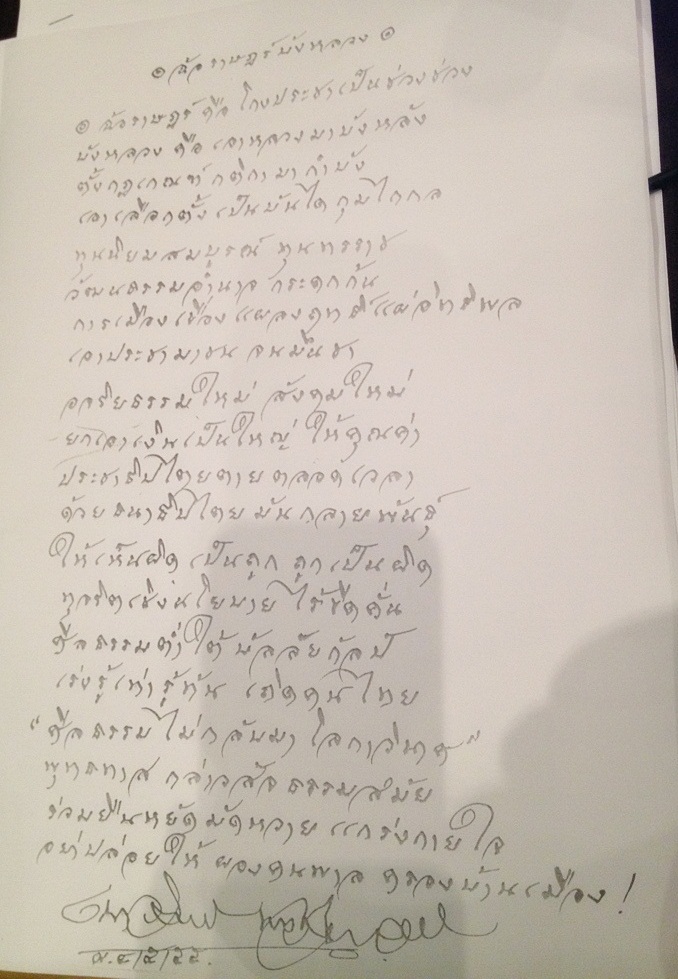 ๑ ฉ้อราษฎร์บังหลวง ๑
๑ ฉ้อราษฎร์ คือ โกงประชาเป็นช่วงช่วง
บังหลวง คือ เอาหลวงมาบังหลัง
ตั้งกฎเกณฑ์ กติกา มากำบัง
เอาเลือกตั้ง เป็นบันได กุมไกกล
ทุนนิยมสมบูรณ์ ทุนทรราช
วัฒนธรรมอำนาจ กระดกก้น
การเมืองเรื่อง แผลงฤทธิ์ แผ่อิทธิพล
เอาประชามาชน จนมึนชา
อารยธรรมใหม่ สังคมใหม่
ยกเอาเงินเป็นใหญ่ ให้คุณค่า
ประชาธิปไตยตาย ตลอดเวลา
ด้วย ธนาธิปไตย มันกลายพันธุ์
ให้เห็นผิด เป็นถูก ถูกเป็นผิด
ทุจริตเชิงนโยบาย ไร้ขีดคั่น
ศีลธรรมต่ำใต้ บัลลัยกัลป์
เร่งรู้เท่า รู้ทัน เถิดคนไทย
“ศีลธรรม ไม่กลับมา โลกาวินาศ”
พุทธทาส กล่าวสัจ ธรรมสมัย
ร่วมยืนหยัด มัดหวาย แกร่งกายใจ
อย่าปล่อยให้ ผองคนพาล ครองบ้านเมือง !